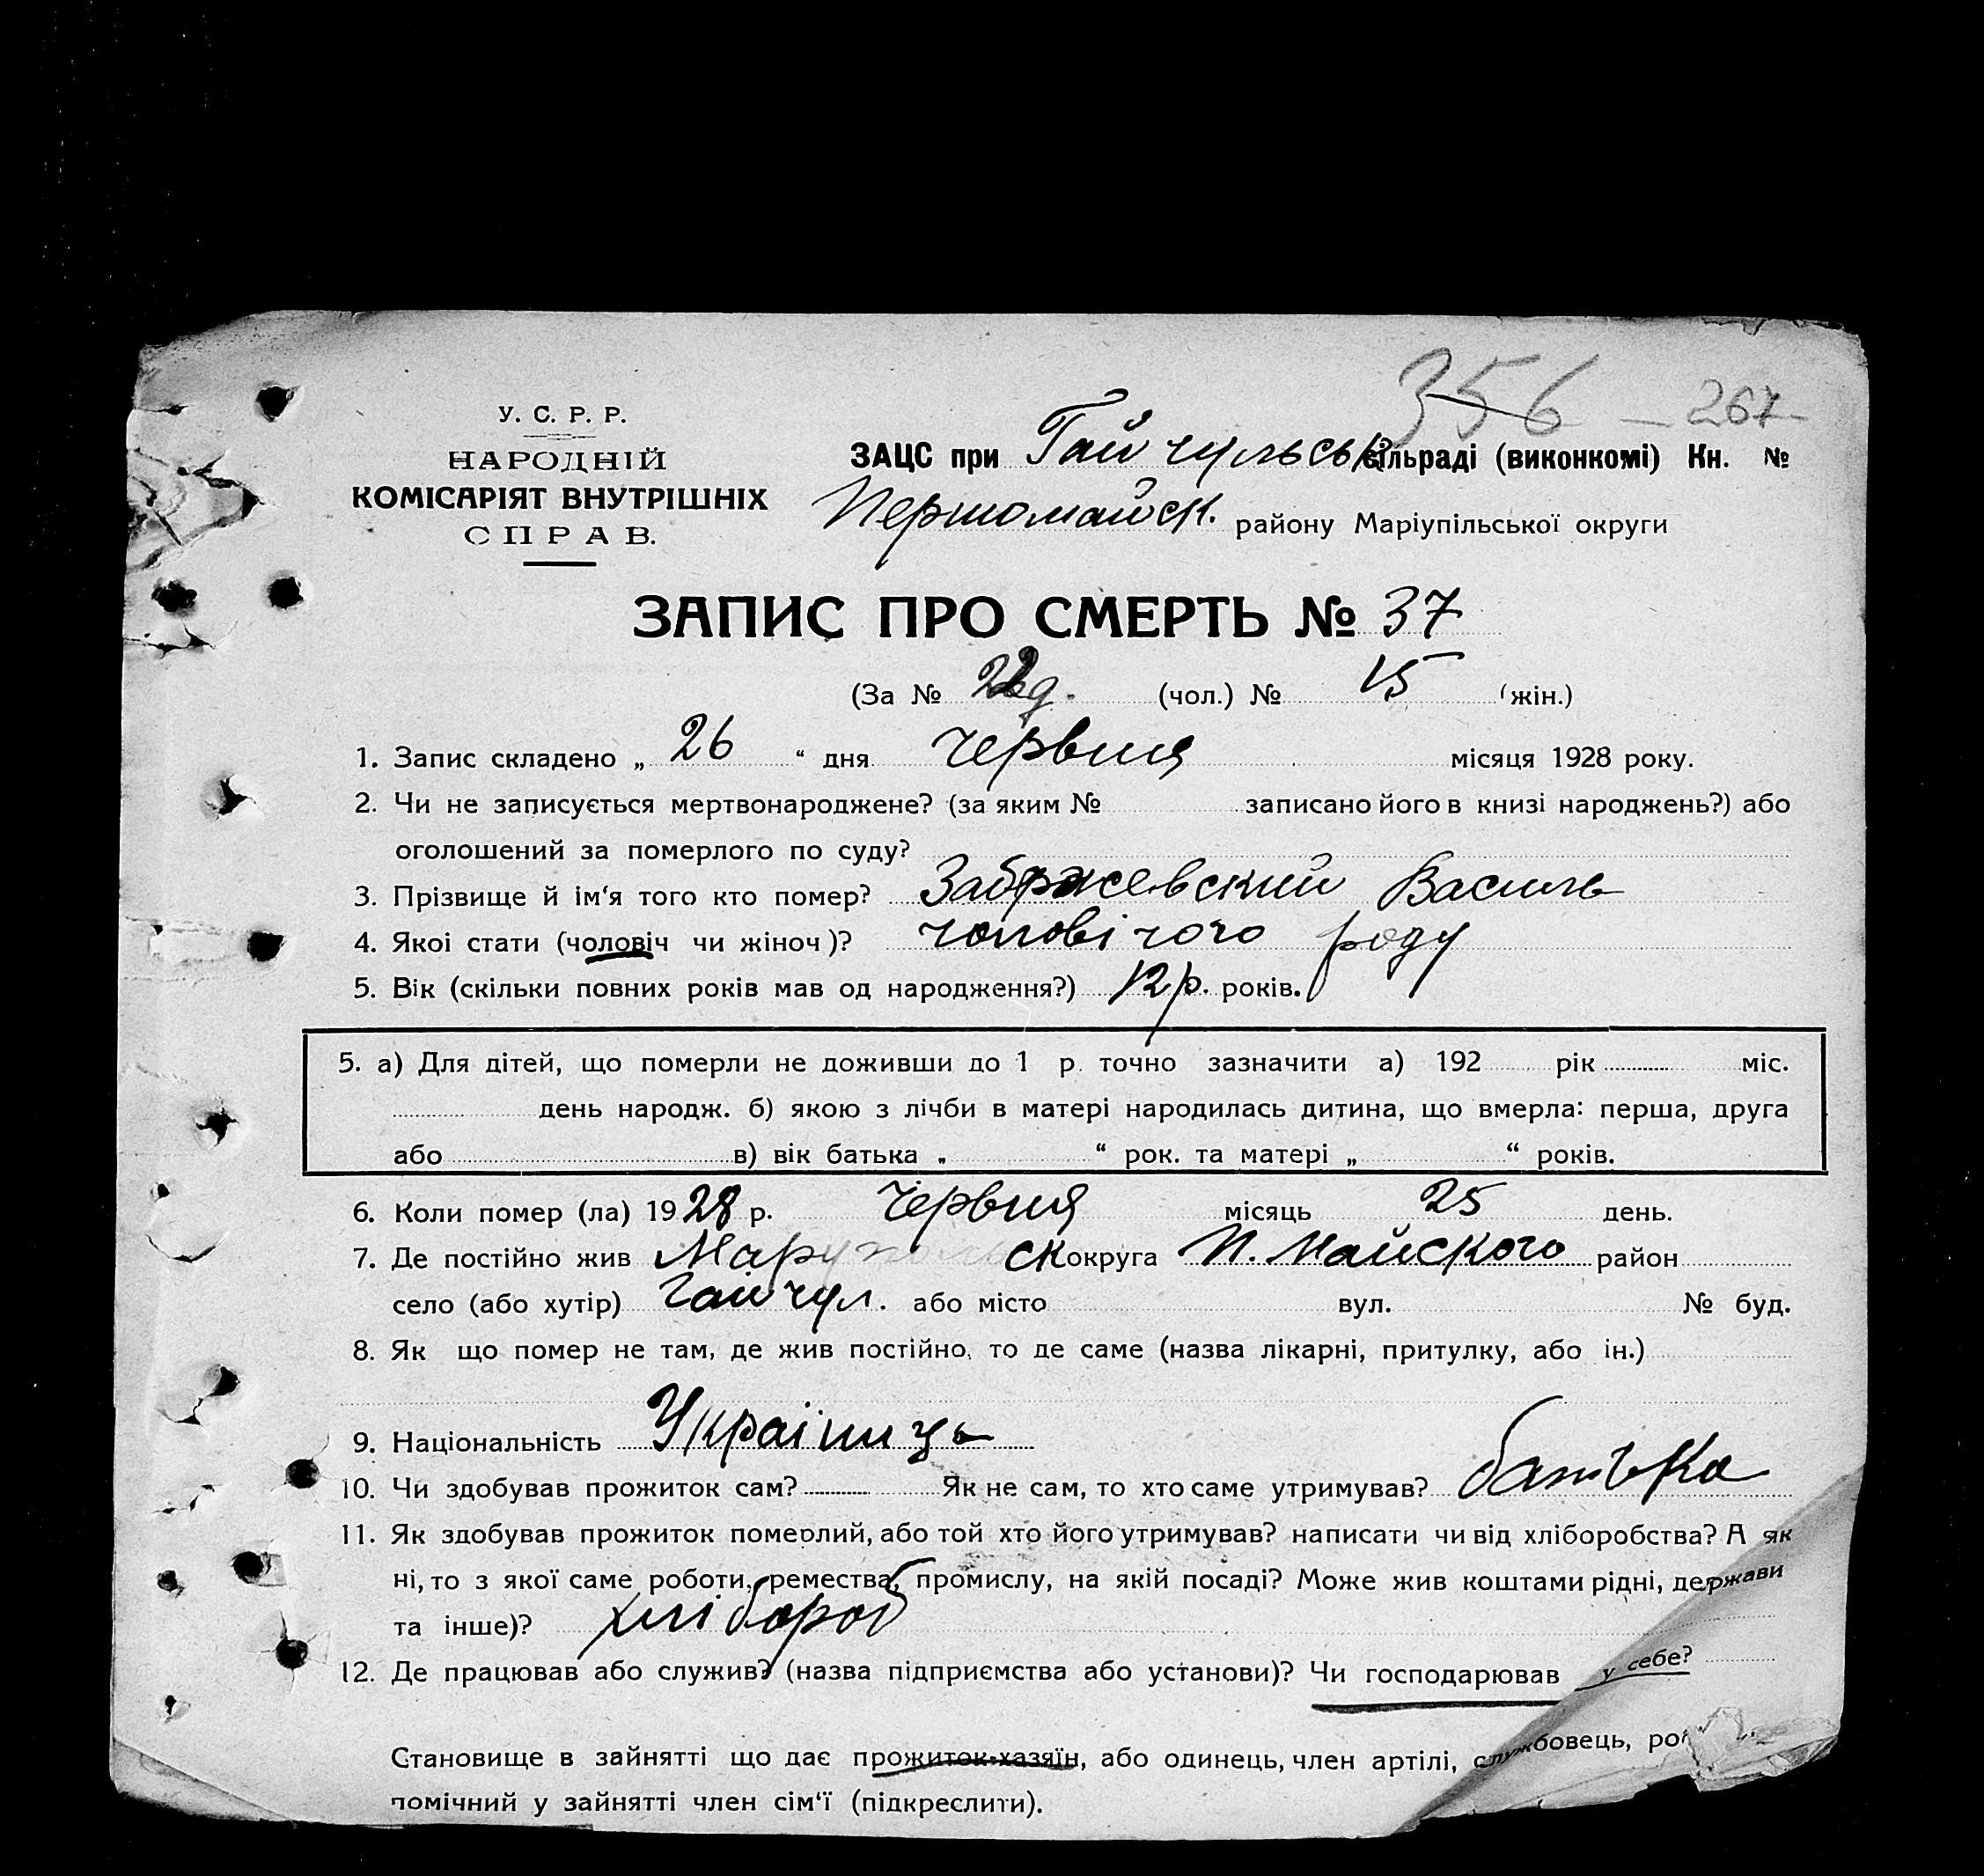 356 — 267
У. С. Р. Р.
НАРОДНІЙ
КОМІСАРІЯТ ВНУТРІШНІХ
СПРАВ.
ЗАЦС при Гайчульськ сільраді (виконкомі) Кн. №
Першомайск. району Маріупільської округи
ЗАПИС ПРО СМЕРТЬ № 37
(За № (чол.) № 15 (жін.)
1. Запис складено „ 26 “ дня червня місяця 1928 року.
2. Чи не записується мертвонароджене? (за яким № записано його в книзі народжень?) або
оголошений за померлого по суду?
3. Прізвище й ім‘я того кто помер? Забржевский Василь
4. Якоі стати (чоловіч чи жіноч)? чоловічого роду
5. Вік (скільки повних років мав од народження?) 12 р. років.
5. а) Для дітей, що померли не доживши до 1 р. точно зазначити а) 192 рік міс.
день народж. б) якою з лічби в матері народилась дитина, що вмерла: перша, друга
або в) вік батька „ “ рок. та матері „ “ років.
6. Коли помер (ла) 1928 р. червня місяць 25 день.
7. Де постійно жив Маруполь ск округа П. Майского район
село (або хутір) Гайчул. або місто вул. № буд.
8. Як що помер не там, де жив постійно, то де саме (назва лікарні, притулку, або ін.)
9. Національність Українць
10. Чи здобував прожиток сам? Як не сам, то хто саме утримував? батька
11. Як здобував прожиток померлий, або той хто його утримував? написати чи від хліборобства? А як
ні, то з якої саме роботи, ремества, промислу, на якій посаді? Може жив коштами рідні, держави
та інше)? хлібороб
12. Де працював або служив? (назва підприємства або установи)? Чи господарював у себе?
Становище в зайнятті що дає прожиток-хазяїн, або одинець, член артілі, службовець,
помічний у зайнятті член сім‘ї (підкреслити).